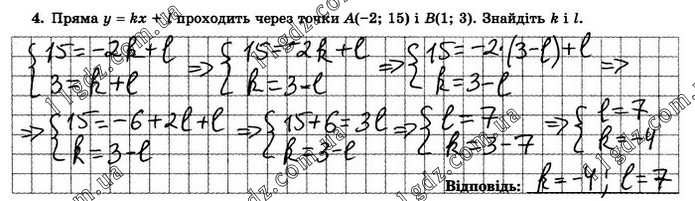 4. Пряма y = kx + l проходить через точки A(−2; 15) і B(1; 3). Знайдіть k і l.
{15=-2k+l => {15=-2k+l => {15=-2·(3-l)+l =>
{3=k+l {k=3-l {k=3-l
=> {15=-6+2l+l => {15+6=3l => {l=7 => {l=7
{k=3-l {k=3-l {k=3-7 {k=-4
Відповідь: k=-4; l=7
11gdz.com.ua